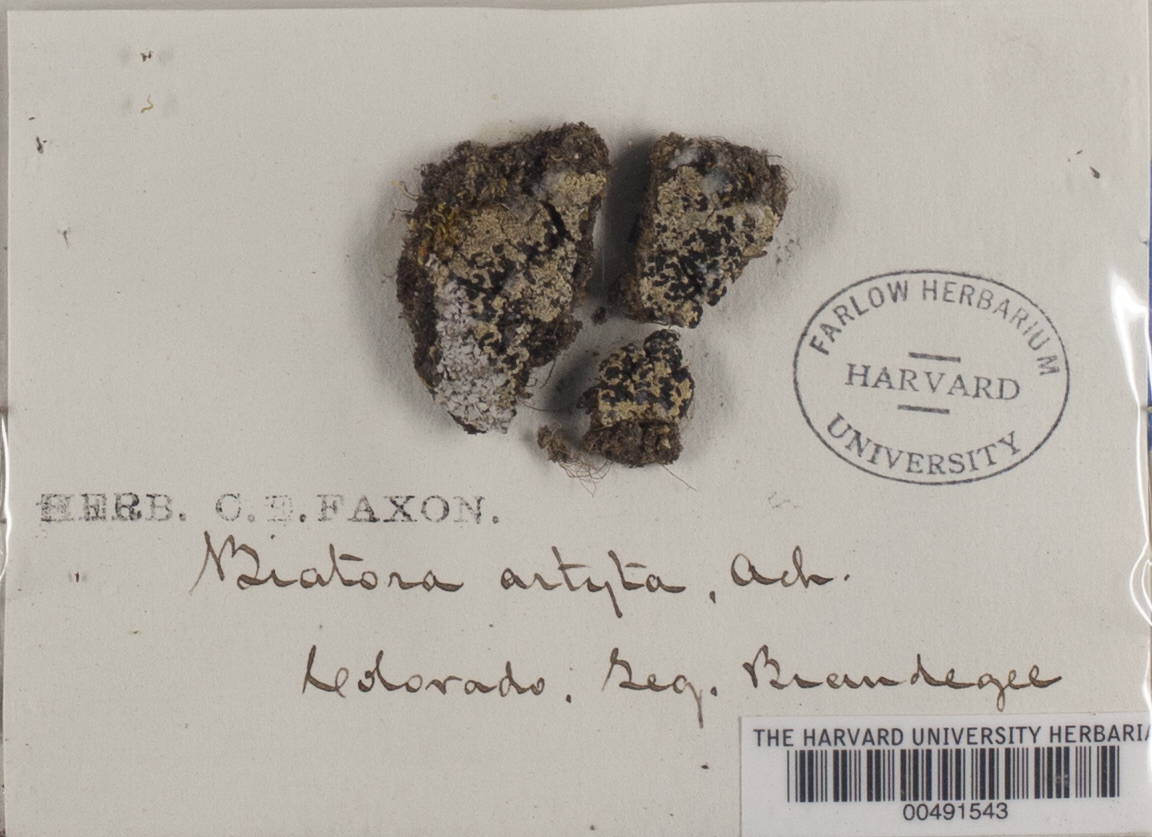 FARLOW HERBARIUM
HARVARD
UNIVERSITY
HERB. C.E. FAXON.
Biatora artyta, Ach.
Colorado. Leg. Brandegee
THE HARVARD UNIVERSITY HERBARIA
00491543